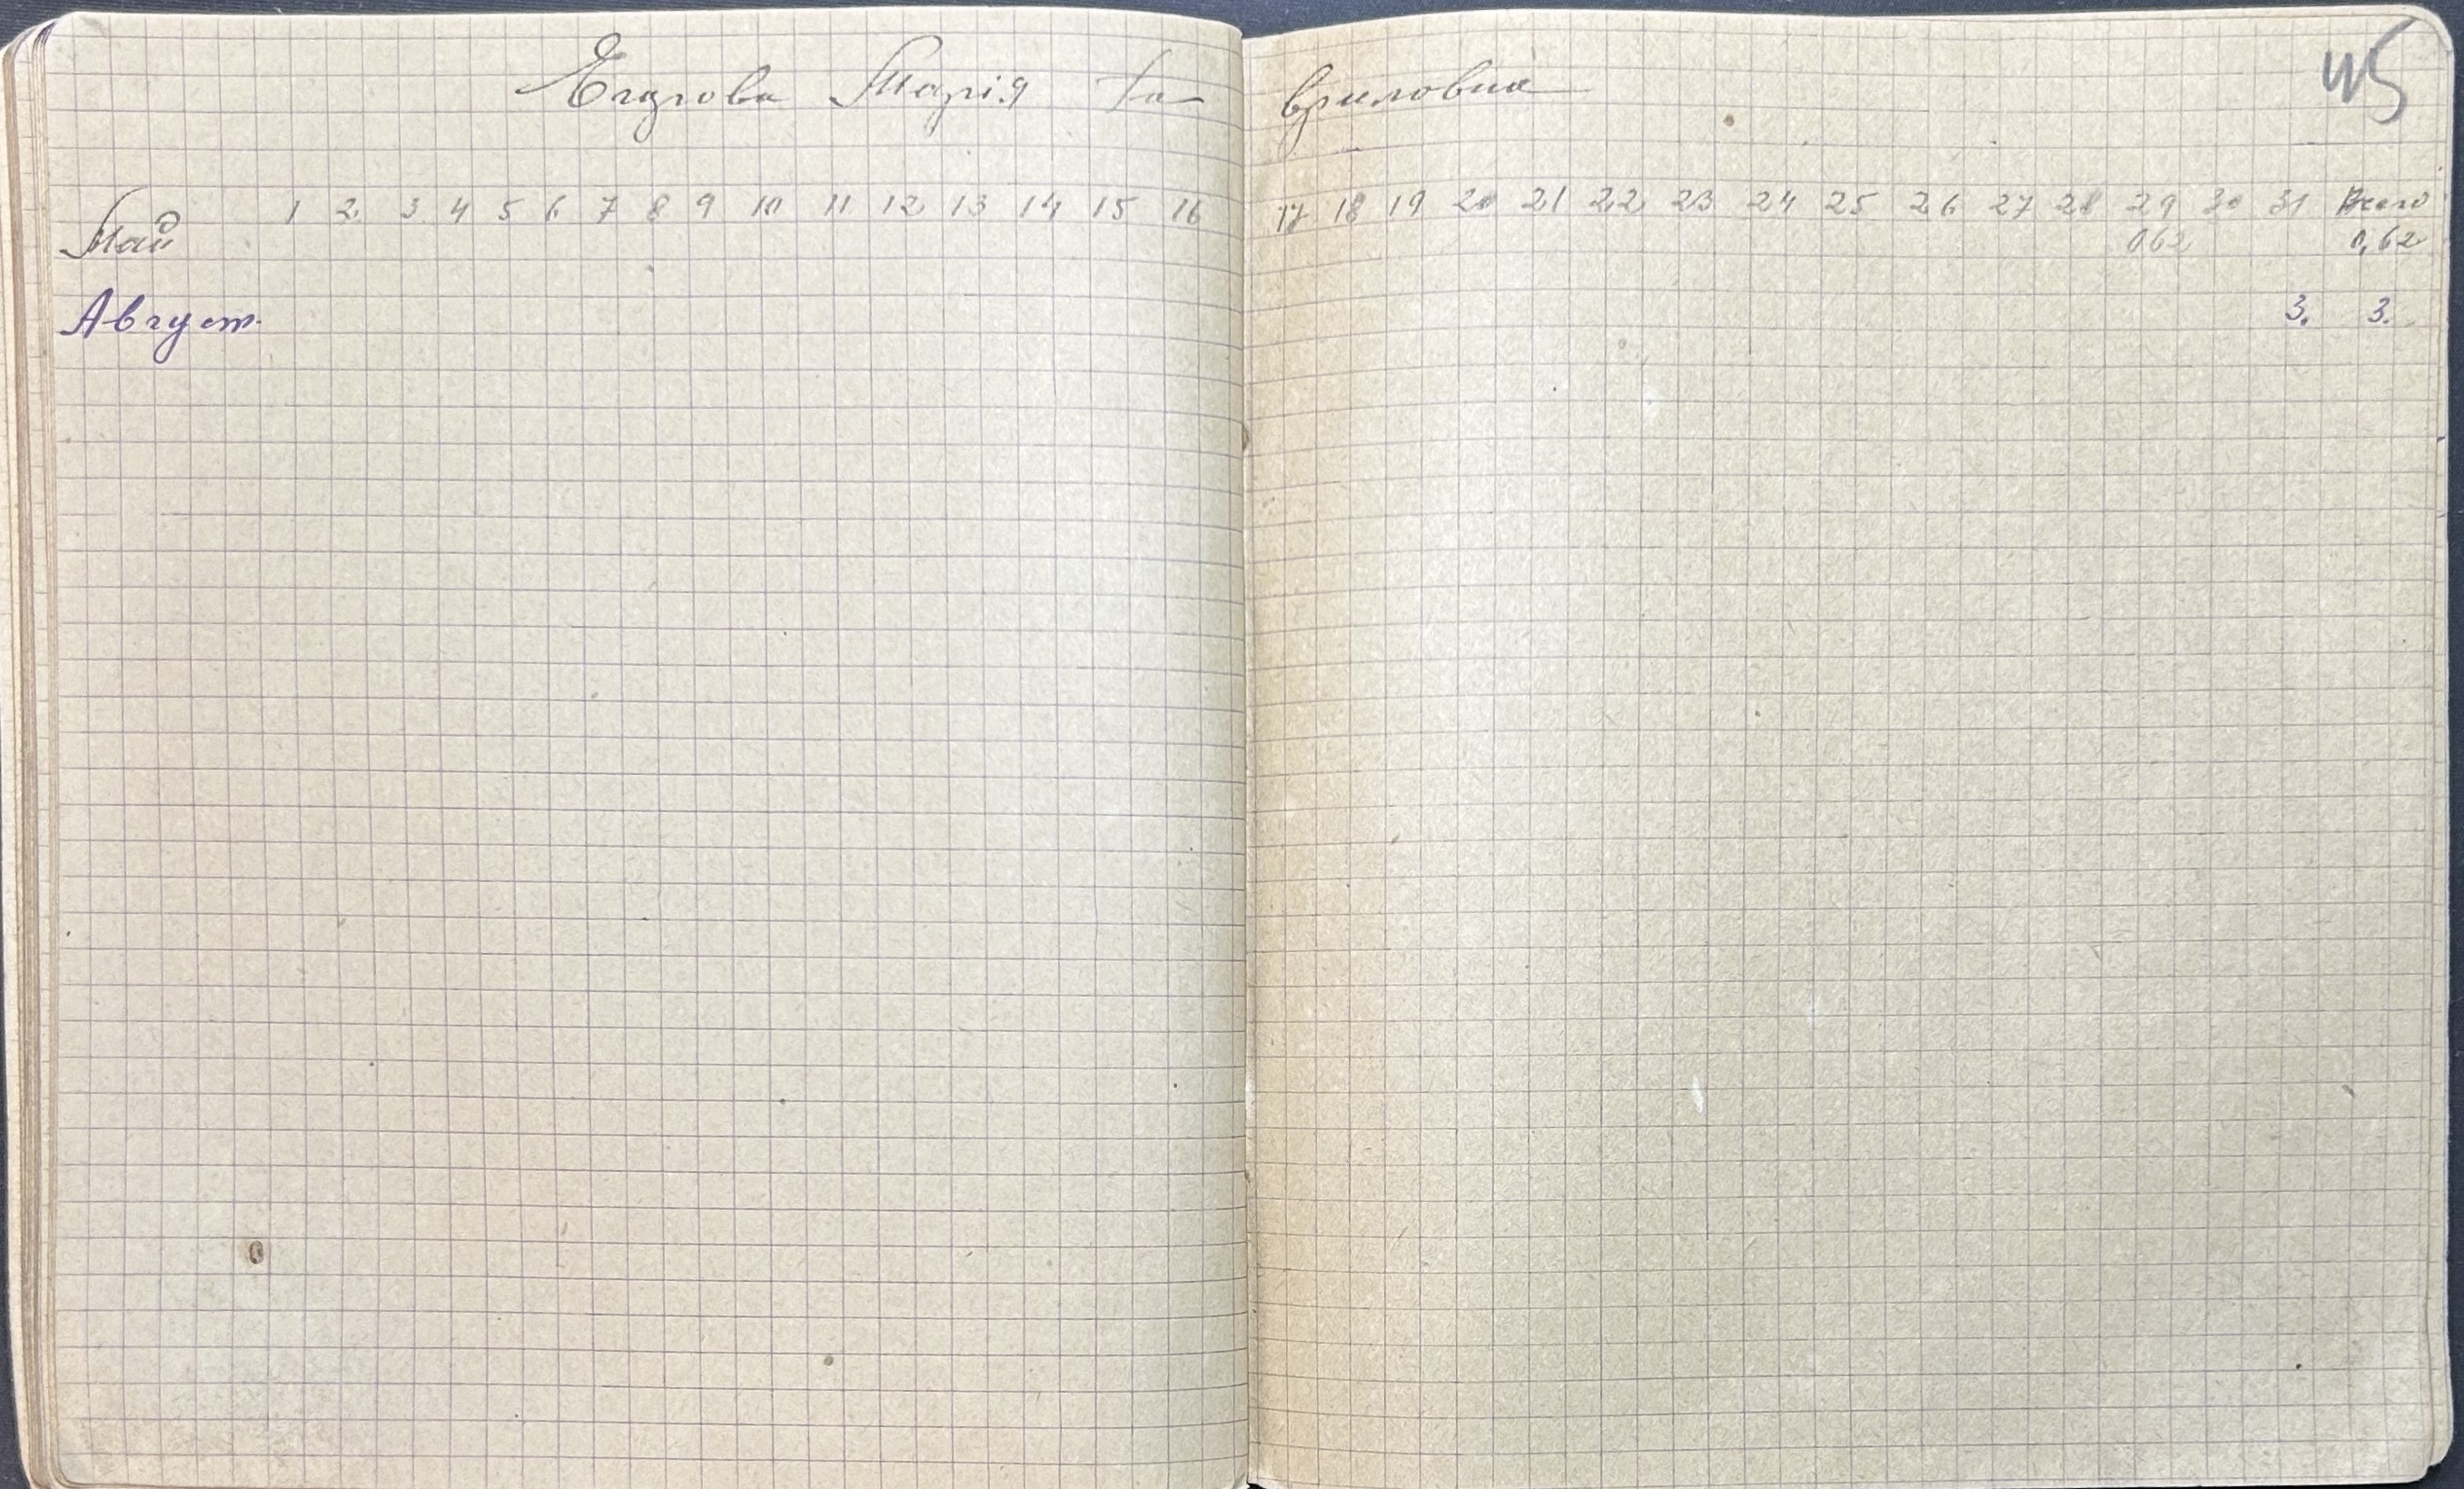 Егорова Марія Гавриловна
45
1 2 3 4 5 6 7 8 9 10 11 12 13 14 15 16 17 18 19 20 21 22 23 24 25 26 27 28 29 30 31 Всего
Май 0,62 0,62
Август 3. 3.